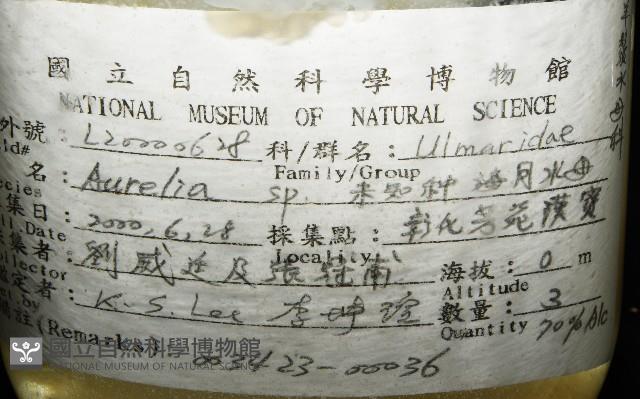 國立自然科學博物館
NATIONAL MUSEUM OF NATURAL SCIENCE
外號: L20000628 科/群名: Ulmaridae
ld# Family/Group
名: Aurelia sp. 未知種 海月水母
ecies
集日: 2000,6,28 採集點: 彰化芳苑漢寶
ll.Date Locality
集者: 劉威廷及張冠南 海拔: 0 m
ollector Altitude
鑑定者: K.S. Lee 李坤瑄 數量: 3
t.by Quantity 70% Alc
備註(Remarks) 23-00036
羊鬚水母科
國立自然科學博物館
NATIONAL MUSEUM OF NATURAL SCIENCE